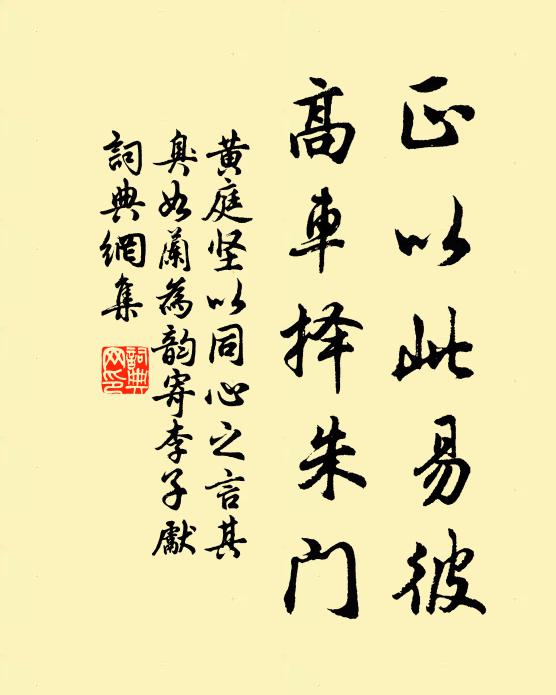 正以此易彼
高車择朱门
黄庭坚以同心之言其
臭如蘭為韵寄李子獻
詞典網集
詞典網印